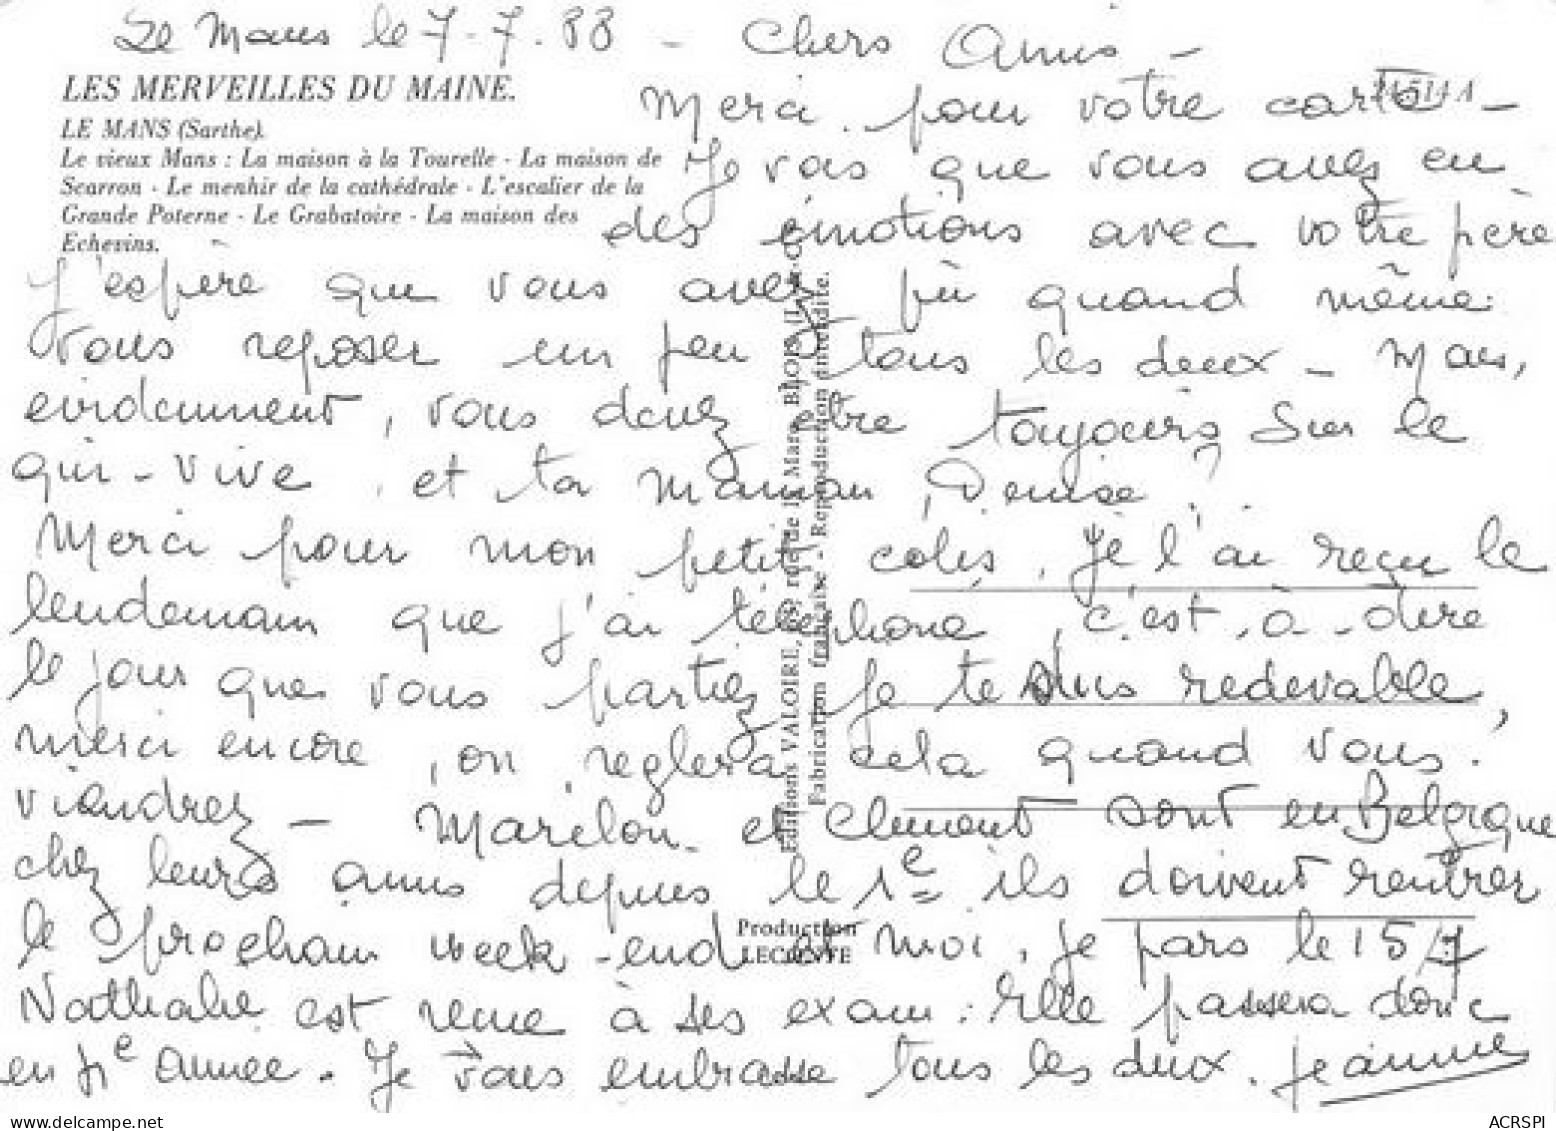 Le Mans le 7-7.88 - Chers Amis -
LES MERVEILLES DU MAINE.
LE MANS (Sarthe).
Le vieux Mans : La maison à la Tourelle - La maison de
Scarron - Le menhir de la cathédrale - L'escalier de la
Grande Poterne - Le Grabatoire - La maison des
Echevins.
Merci pour votre carte -
Je vois que vous avez eu
des émotions avec votre père
J'espère que vous avez pû quand même
vous reposer un peu tous les deux - Mais,
evidemment, vous devez être toujours sur le
qui-vive, et ta Maman, Denise ?
Merci pour mon petit colis, je l'ai reçu le
lendemain que j'ai téléphoné, c'est-à-dire
le jour que vous partiez je te suis redevable,
merci encore, on reglera cela quand vous
viendrez - Marilou et Clement sont en Belgique
chez leurs amis depuis le 1e ils doivent rentrer
le prochain week-end et moi, je pars le 15/7
Nathalie est reçue à ses exam : Elle passera donc
en année. Je vous embrasse tous les deux. Jeanne
Editions VALOIRE, rue de la Marc, BLOIS
Fabrication française - Reproduction interdite.
Production
LECONTE
ACRSPI